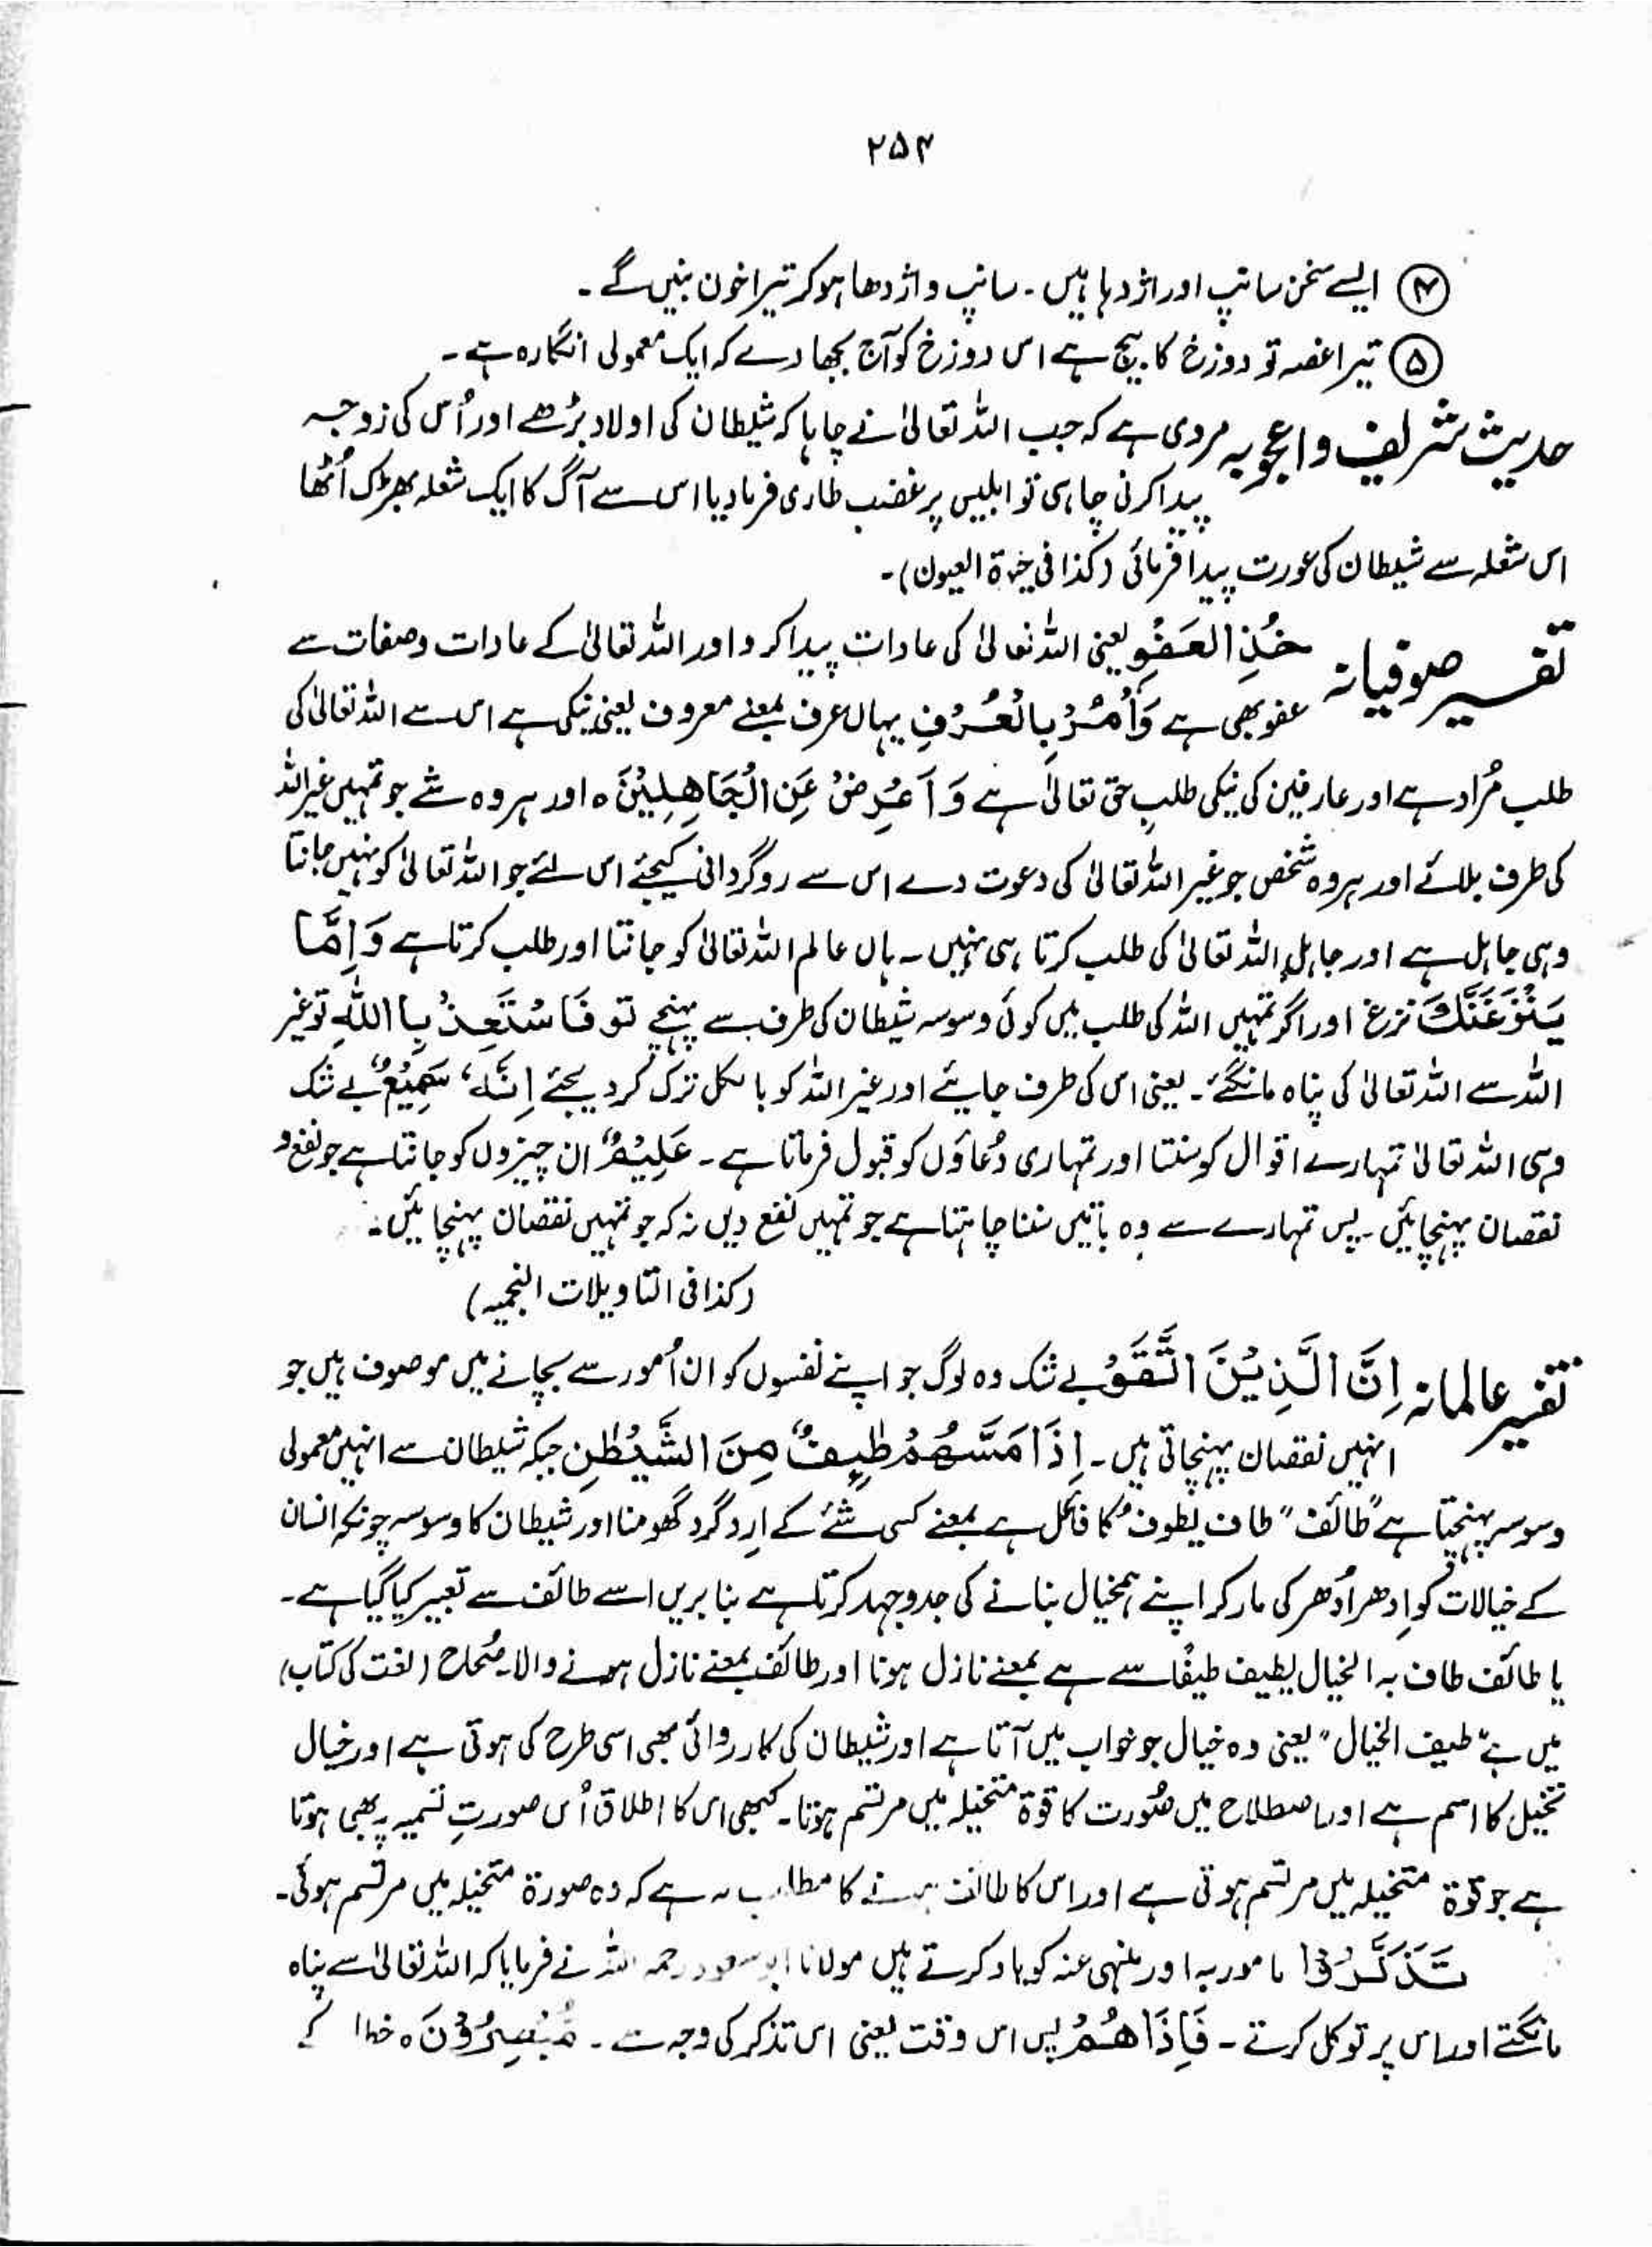 ۲۵۴
④ ایسے سخن سانپ اور اژدہا ہیں ۔ سانپ و اژدھا ہو کر تیرا خون بنیں گے ۔
⑤ تیرا غصہ تو دوزخ کا بیج ہے اس دوزخ کو آج بجھا دے کہ ایک معمولی انگارہ ہے ۔
حدیث شریف و اعجوبہ مروی ہے کہ جب اللہ تعالیٰ نے چاہا کہ شیطان کی اولاد بڑھے اور اُس کی زوجہ
پیدا کرنی چاہی تو ابلیس پر غضب طاری فرما دیا اس سے آگ کا ایک شعلہ بھڑک اُٹھا
اس شعلہ سے شیطان کی عورت پیدا فرمائی (کذا فی العیون) ۔
تفسیر صوفیانہ خُذِ الْعَفْوَ یعنی اللہ تعالیٰ کی عادات پیدا کرو اور اللہ تعالیٰ کے عادات وصفات سے
عفو بھی ہے وَأْمُرْ بِالْعُرْفِ یہاں عرف بمعنے معروف یعنی نیکی ہے اس سے اللہ تعالیٰ کی
طلب مُراد ہے اور عارفین کی نیکی طلبِ حق تعالیٰ ہے وَ اَعْرِضْ عَنِ الْجَاهِلِيْنَ ہ اور ہر وہ شے جو تمہیں غیر اللہ
کی طرف بلائے اور ہر وہ شخص جو غیر اللہ تعالیٰ کی دعوت دے اس سے روگردانی کیجئے اس لئے جو اللہ تعالیٰ کو نہیں جانتا
وہی جاہل ہے اور جاہل اللہ تعالیٰ کی طلب کرتا ہی نہیں ۔ ہاں عالم اللہ تعالیٰ کو جانتا اور طلب کرتا ہے وَ اِمَّا
يَنْزَغَنَّكَ نزغ اور اگر تمہیں اللہ کی طلب میں کوئی وسوسہ شیطان کی طرف سے پہنچے تو فَاسْتَعِذْ بِاللّٰهِ تو غیر
اللہ سے اللہ تعالیٰ کی پناہ مانگئے ۔ یعنی اس کی طرف جایئے اور غیر اللہ کو بالکل ترک کر دیجئے اِنَّهٗ سَمِيْعٌ بے شک
وہی اللہ تعالیٰ تمہارے اقوال کو سنتا اور تمہاری دُعاؤں کو قبول فرماتا ہے ۔ عَلِيْمٌ ان چیزوں کو جانتا ہے جو نفع و
نقصان پہنچائیں ۔ پس تمہارے سے وہ باتیں سننا چاہتا ہے جو تمہیں نفع دیں نہ کہ جو تمہیں نقصان پہنچائیں ۔
(کذا فی التاویلات النجمیہ)
تفسیر عالمانہ اِنَّ الَّذِيْنَ اتَّقَوْ بے شک وہ لوگ جو اپنے نفسوں کو ان اُمور سے بچانے میں موصوف ہیں جو
انہیں نقصان پہنچاتی ہیں ۔ اِذَا مَسَّهُمْ طٰٓىِٕفٌ مِنَ الشَّيْطٰنِ جبکہ شیطان سے انہیں معمولی
وسوسہ پہنچتا ہے "طائف" طاف یطوف کا فاعل ہے بمعنے کسی شئے کے اِردگرد گھومنا اور شیطان کا وسوسہ چونکہ انسان
کے خیالات کو اِدھر اُدھر کی مار کر اپنے ہمخیال بنانے کی جدوجہد کرتا ہے بنا بریں اسے طائف سے تعبیر کیا گیا ہے ۔
یا طائف طاف بہ الخیال یطیف طیفًا سے ہے بمعنے نازل ہونا اور طائف بمعنے نازل ہونے والا ۔ صُحاح (لغت کی کتاب)
میں ہے "طیف الخیال" یعنی وہ خیال جو خواب میں آتا ہے اور شیطان کی کارروائی بھی اسی طرح کی ہوتی ہے اور خیال
تخیل کا اسم ہے اور اصطلاح میں صُورت کا قوۃ متخیلہ میں مرتسم ہونا ۔ کبھی اس کا اطلاق اُس صورتِ تسمیہ پر بھی ہوتا
ہے جو قوۃ متخیلہ میں مرتسم ہوتی ہے اور اس کا طائف ہونے کا مطلب یہ ہے کہ وہ صورۃ متخیلہ میں مرتسم ہوئی ۔
تَذَكَّرُوْا مامور بہ اور منہی عنہ کو یاد کرتے ہیں مولانا ابو سعود رحمہ اللہ نے فرمایا کہ اللہ تعالیٰ سے پناہ
مانگتے اور اس پر توکل کرتے ۔ فَاِذَا هُمْ پس اس وقت یعنی اس تذکر کی وجہ سے ۔ مُبْصِرُوْنَ ہ خطا کے